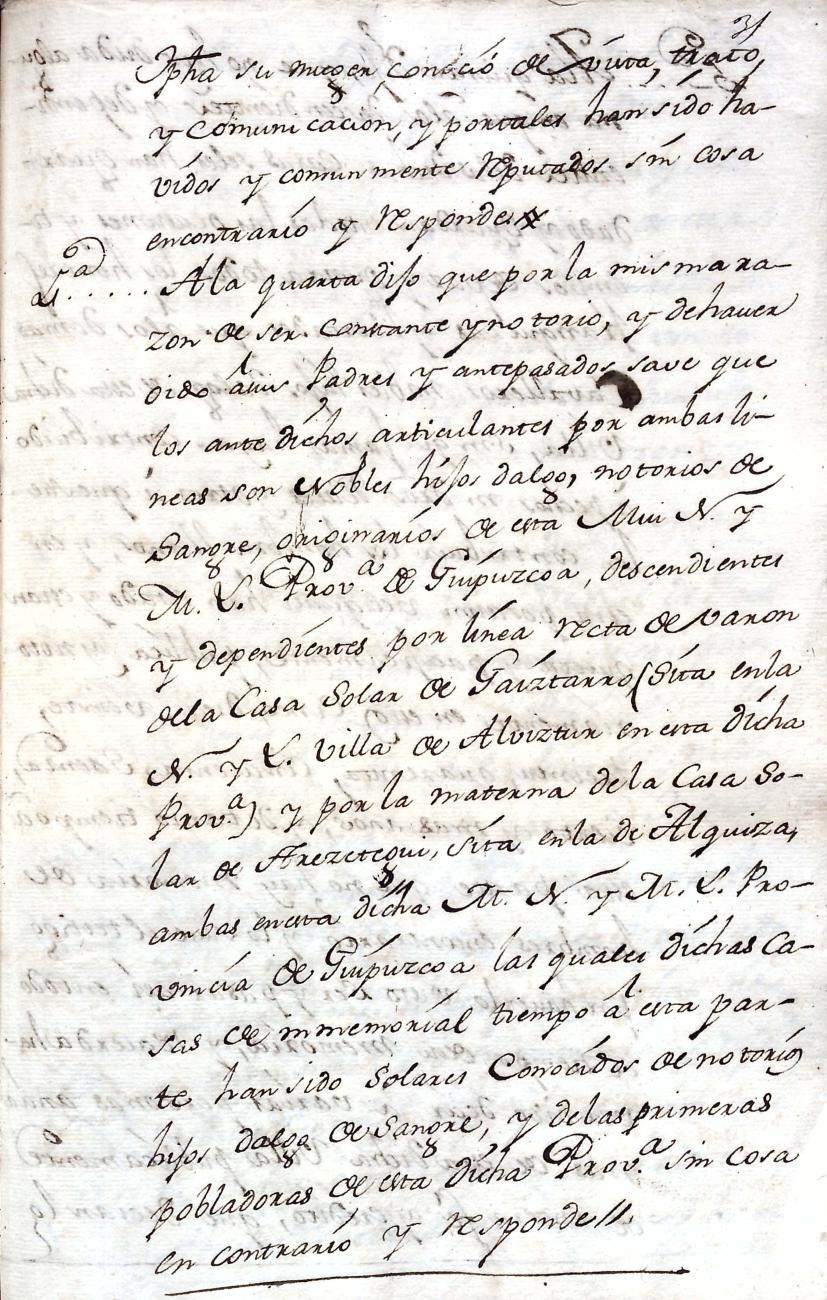 31
Jpha su muger, conoció de vista, trato,
y Comunicacion, y portales han sido ha-
vidos y comunmente reputados sin cosa
encontrario y responde//
4.ª ..... Ála quarta dijo que por la misma ra-
zon de ser constante y notorio, y dehaver
oido á sus Padres y antepasados, save que
los ante dichos articulantes por ambas li-
neas son Nobles hijos dalgo, notorios de
Sangre, originarios de esta Mui N. y
M. L. Prov.ª de Guipuzcoa, descendientes
y dependientes por linea recta de varon
dela Casa Solar de Gaiztarro (Sita enla
N. y L. villa de Alviztur en esta dicha
Prov.ª) y por la materna dela Casa So-
lar de Arezetegui, sita enla de Alquiza,
ambas en esta dicha M. N. y M. L. Pro-
vincia de Guipuzcoa las quales dichas Ca-
sas de inmemorial tiempo á esta par-
te han sido Solares Conocidos de notorios
hijos dalgo de Sangre, y delas primeras
pobladoras de esta dicha Prov.ª sin cosa
en contrario y responde//.